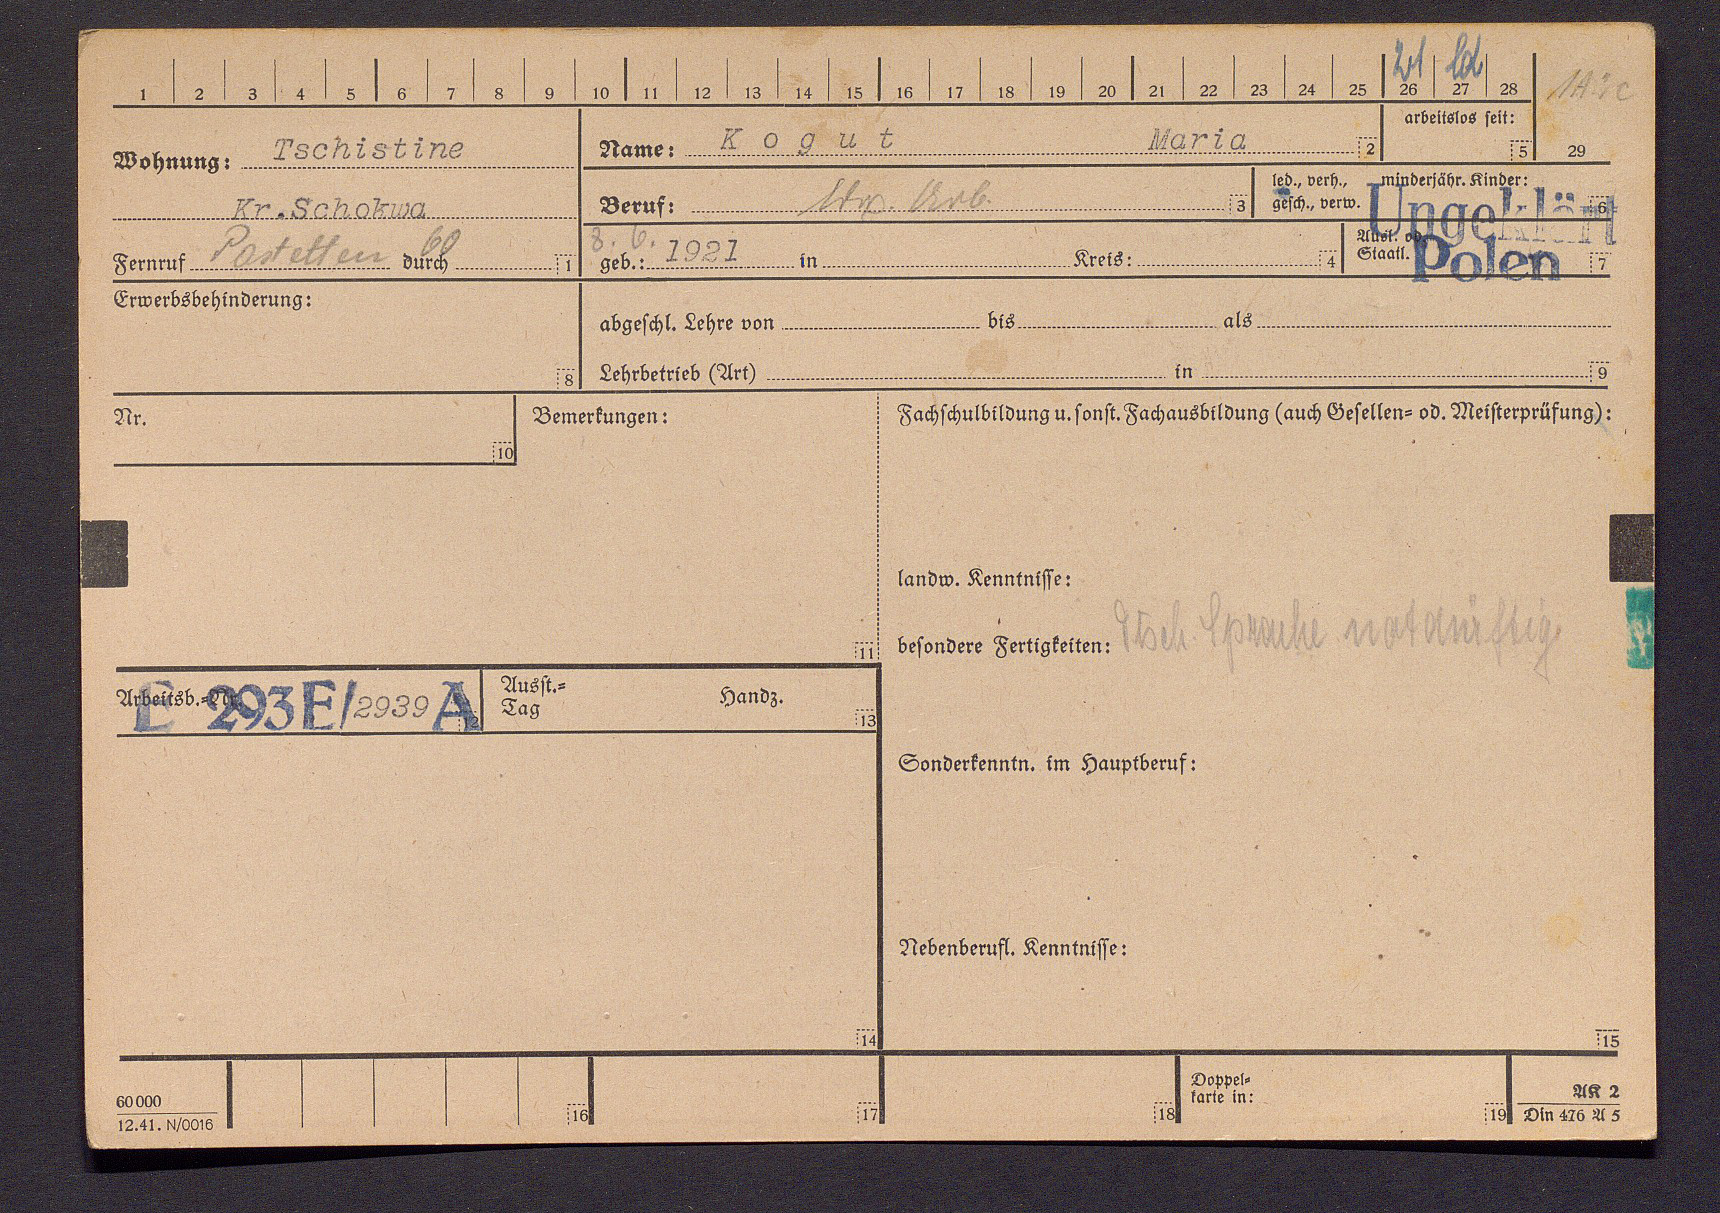 21 LA
1 2 3 4 5 6 7 8 9 10 11 12 13 14 15 16 17 18 19 20 21 22 23 24 25 26 27 28
29
arbeitslos seit:
5
Wohnung: Tschistine
Name: Kogut Maria 2
Kr.Schokwa
Beruf: Arb. 3
led., verh., gesch., verw.
minderjähr. Kinder: 6
Ungeklärt
Fernruf Postetten 60 durch 1
geb.: 8. 6. 1921 in Kreis: 4
Ausl. od. Staatl. Polen 7
Erwerbsbehinderung:
8
abgeschl. Lehre von bis als
Lehrbetrieb (Art) in 9
Nr.
10
Bemerkungen:
11
Fachschulbildung u. sonst. Fachausbildung (auch Gesellen- od. Meisterprüfung):
landw. Kenntnisse:
besondere Fertigkeiten: Dtsch. Sprache notdürftig
Arbeitsb.-Nr. E 293E/2939 A 12
Ausst.-Tag Handz. 13
Sonderkenntn. im Hauptberuf:
Nebenberufl. Kenntnisse:
14
15
60 000
12.41. N/0016
16
17
18
Doppel-
karte in:
19
AK 2
Din 476 A 5